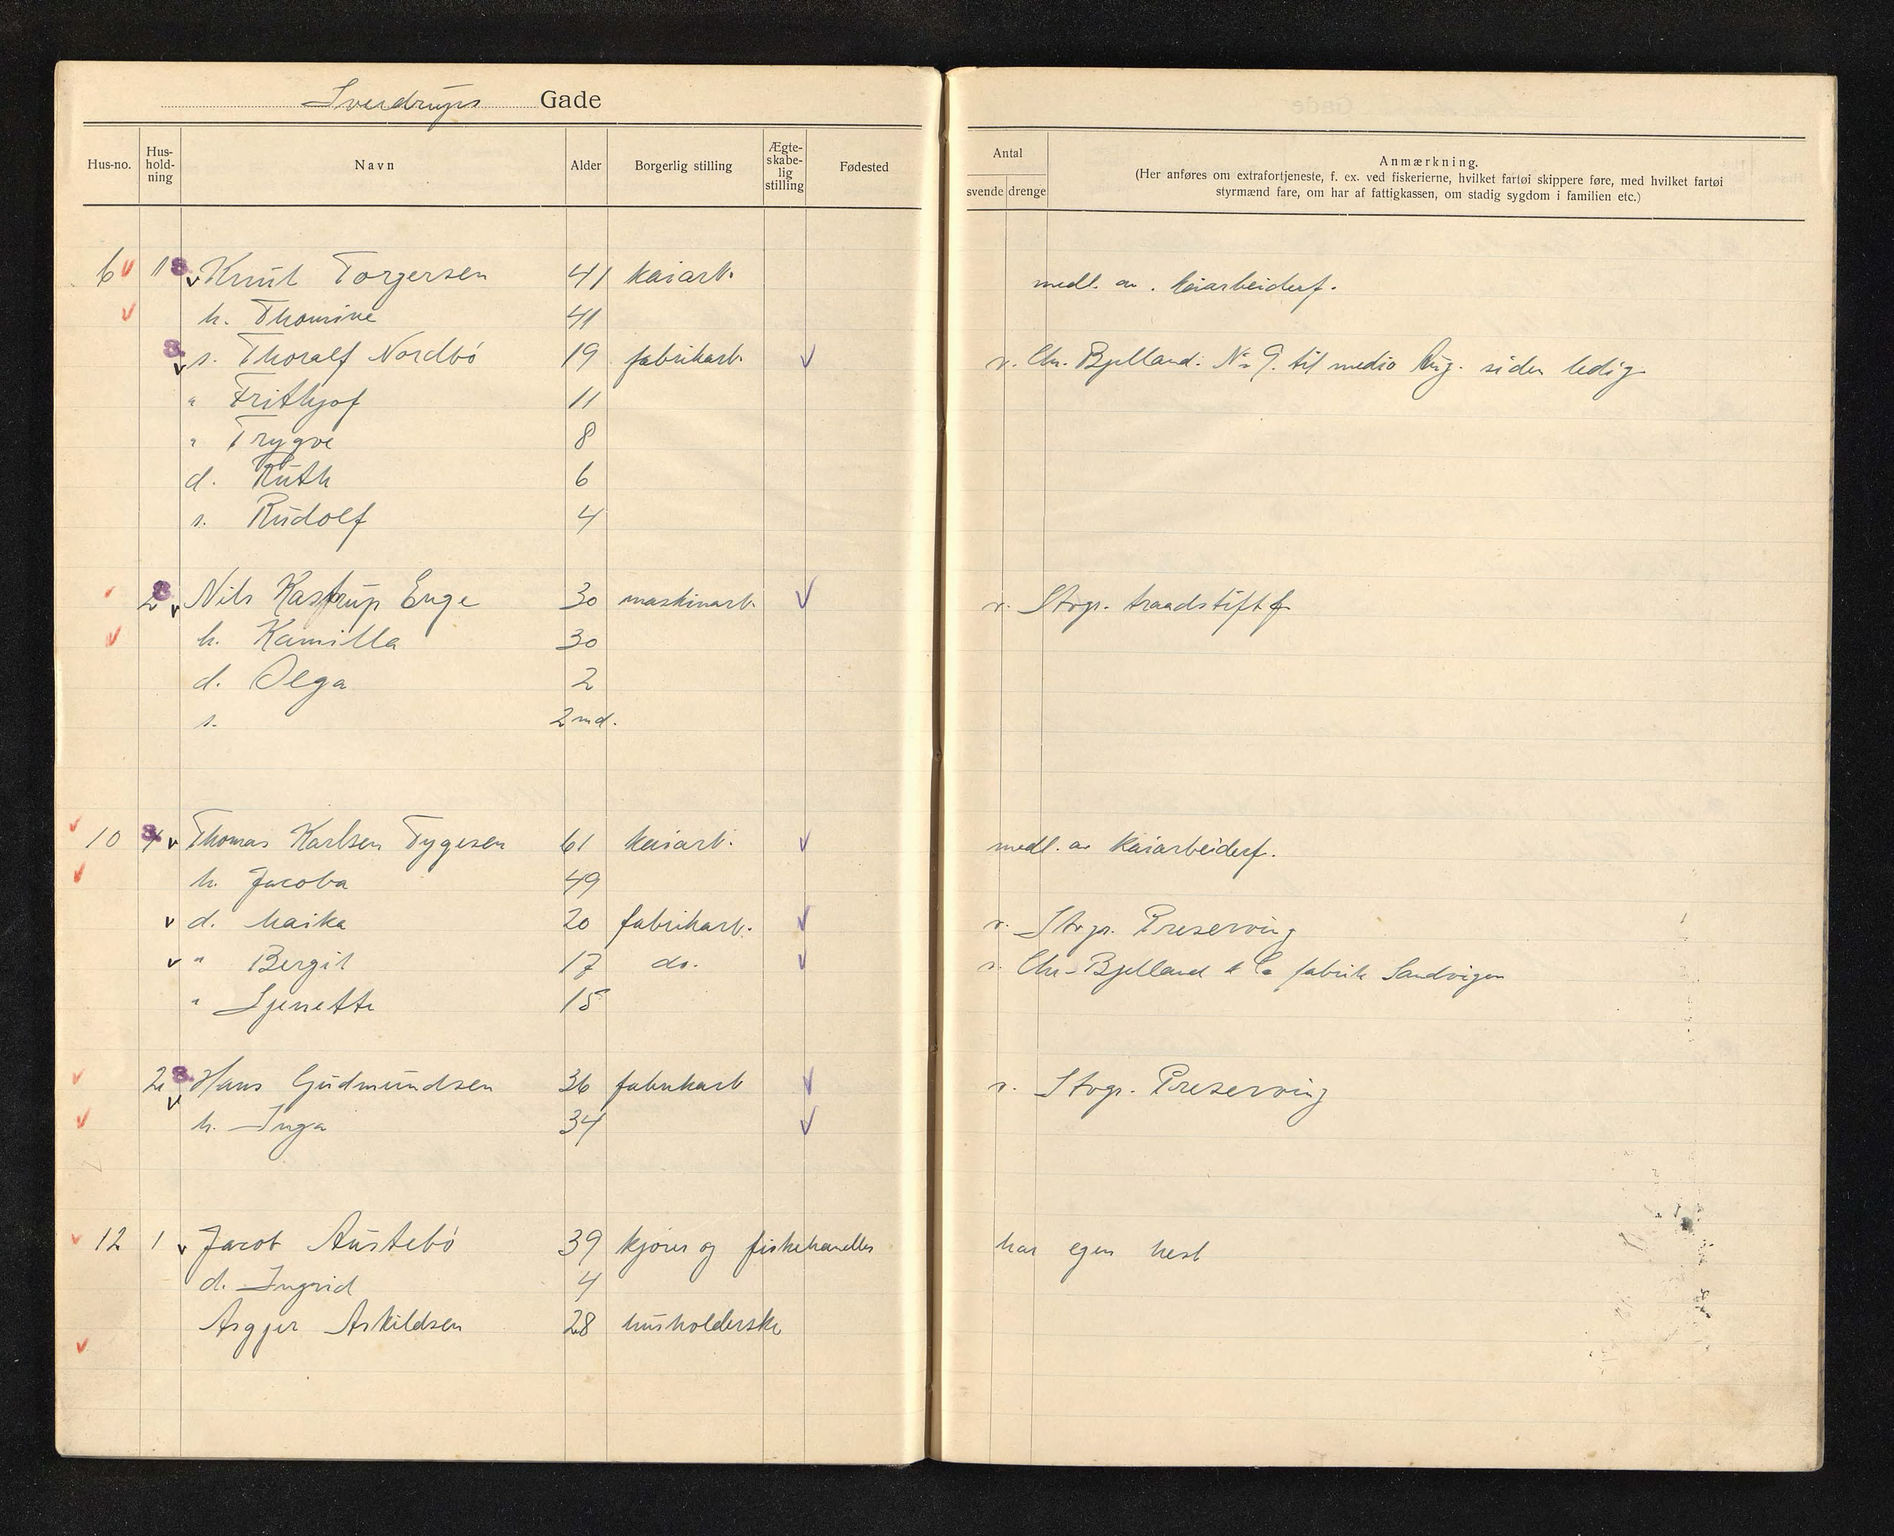 Sverdrups Gade
Hus-no. Hus-hold-ning Navn Alder Borgerlig stilling Ægte-skabe-lig stilling Fødested Antal svende drenge Anmærkning.
(Her anføres om extrafortjeneste, f. ex. ved fiskerierne, hvilket fartøi skippere føre, med hvilket fartøi
styrmænd fare, om har af fattigkassen, om stadig sygdom i familien etc.)
6 1 Knut Torgersen 41 kaiarb. medl. av. kaiarbeiderf.
h. Thomine 41
s. Thoralf Nordbö 19 fabrikarb. v. Chr. Bjelland. No 9. til medio Aug. siden ledig
" Frithjof 11
" Trygve 8
d. Ruth 6
s. Rudolf 4
2 Nils Kastrup Enge 30 maskinarb. v. Stvgr. traadstiftf.
h. Kamilla 30
d. Olga 2
s. 2 md.
10 1 Thomas Karlsen Tygesen 61 kaiarb. medl. av kaiarbeiderf.
h. Jacoba 49
d. Maika 20 fabrikarb. v. Stvgr. Preserving
" Bergit 17 do. v. Chr. Bjelland & Co fabrik Sandvigen
" Sjenette 15
2 Hans Gudmundsen 36 fabrikarb v. Stvgr. Preserving
h. Inga 34
12 1 Jacob Austebö 39 kjörer og fiskehandler har egen hest
d. Ingrid 4
Asgjer Askildsen 28 husholderske